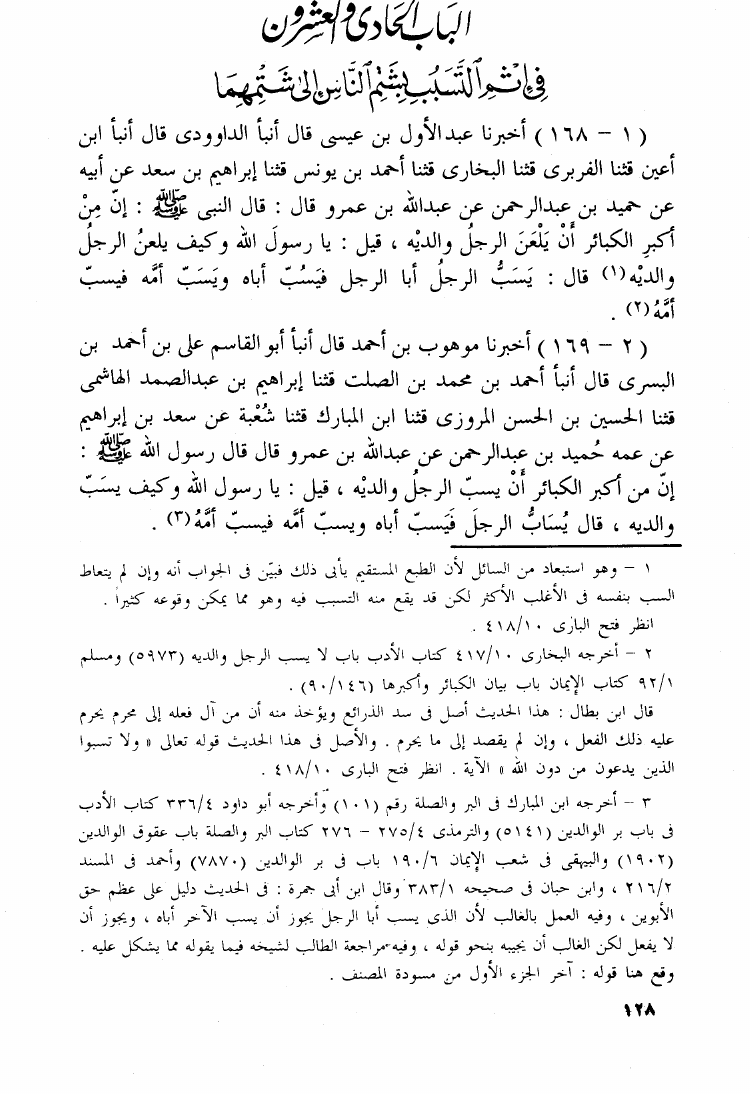 الباب الحادى والعشرون
في إثم التسبب بشتم الناس إلى شتمهما
( ١ – ١٦٨ ) أخبرنا عبدالأول بن عيسى قال أنبأ الداوودى قال أنبأ ابن
أعين قثنا الفربرى قثنا البخارى قثنا أحمد بن يونس قثنا إبراهيم بن سعد عن أبيه
عن حميد بن عبدالرحمن عن عبدالله بن عمرو قال : قال النبى ﷺ : إنّ مِنْ
أكبرِ الكبائر أَنْ يَلْعَنَ الرجلُ والديْه ، قيل : يا رسولَ الله وكيف يلعنُ الرجلُ
والديْه(١) قال : يَسَبُّ الرجلُ أبا الرجل فيَسُبّ أباه ويَسَبّ أمَّه فيسبّ
أمَّهُ(٢) .
( ٢ – ١٦٩ ) أخبرنا موهوب بن أحمد قال أنبأ أبو القاسم على بن أحمد بن
البسرى قال أنبأ أحمد بن محمد بن الصلت قثنا إبراهيم بن عبدالصمد الهاشمى
قثنا الحسين بن الحسن المروزى قثنا ابن المبارك قثنا شُعْبة عن سعد بن إبراهيم
عن عمه حُميد بن عبدالرحمن عن عبدالله بن عمرو قال قال رسول الله ﷺ :
إنّ من أكبر الكبائر أَنْ يسبّ الرجلُ والديْه ، قيل : يا رسول الله وكيف يسَبّ
والديه ، قال يُسَابُّ الرجلَ فَيَسبّ أباه ويسبّ أمَّه فيسبّ أمَّهُ(٣) .
١ – وهو استبعاد من السائل لأن الطبع المستقيم يأبى ذلك فبيّن فى الجواب أنه وإن لم يتعاط
السب بنفسه فى الأغلب الأكثر لكن قد يقع منه التسبب فيه وهو مما يمكن وقوعه كثيراً .
انظر فتح البارى ٤١٨/١٠ .
٢ – أخرجه البخارى ٤١٧/١٠ كتاب الأدب باب لا يسب الرجل والديه (٥٩٧٣) ومسلم
٩٢/١ كتاب الإيمان باب بيان الكبائر وأكبرها (٩٠/١٤٦) .
قال ابن بطال : هذا الحديث أصل فى سد الذرائع ويؤخذ منه أن من آل فعله إلى محرم يحرم
عليه ذلك الفعل ، وإن لم يقصد إلى ما يحرم . والأصل فى هذا الحديث قوله تعالى « ولا تسبوا
الذين يدعون من دون الله » الآية . انظر فتح البارى ٤١٨/١٠ .
٣ – أخرجه ابن المبارك فى البر والصلة رقم (١٠١) وأخرجه أبو داود ٣٣٦/٤ كتاب الأدب
فى باب بر الوالدين (٥١٤١) والترمذى ٢٧٥/٤ – ٢٧٦ كتاب البر والصلة باب عقوق الوالدين
(١٩٠٢) والبيهقى فى شعب الإيمان ١٩٠/٦ باب فى بر الوالدين (٧٨٧٠) وأحمد فى المسند
٢١٦/٢ ، وابن حبان فى صحيحه ٣٨٣/١ وقال ابن أبى جمرة : فى الحديث دليل على عظم حق
الأبوين ، وفيه العمل بالغالب لأن الذى يسب أبا الرجل يجوز أن يسب الآخر أباه ، ويجوز أن
لا يفعل لكن الغالب أن يجيبه بنحو قوله ، وفيه مراجعة الطالب لشيخه فيما يقوله مما يشكل عليه .
وقع هنا قوله : آخر الجزء الأول من مسودة المصنف .
١٢٨